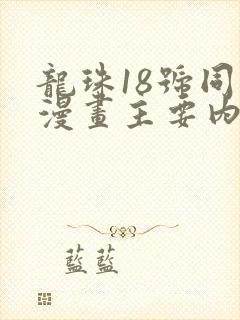 龍珠18號同
漫畫主要內
藍藍